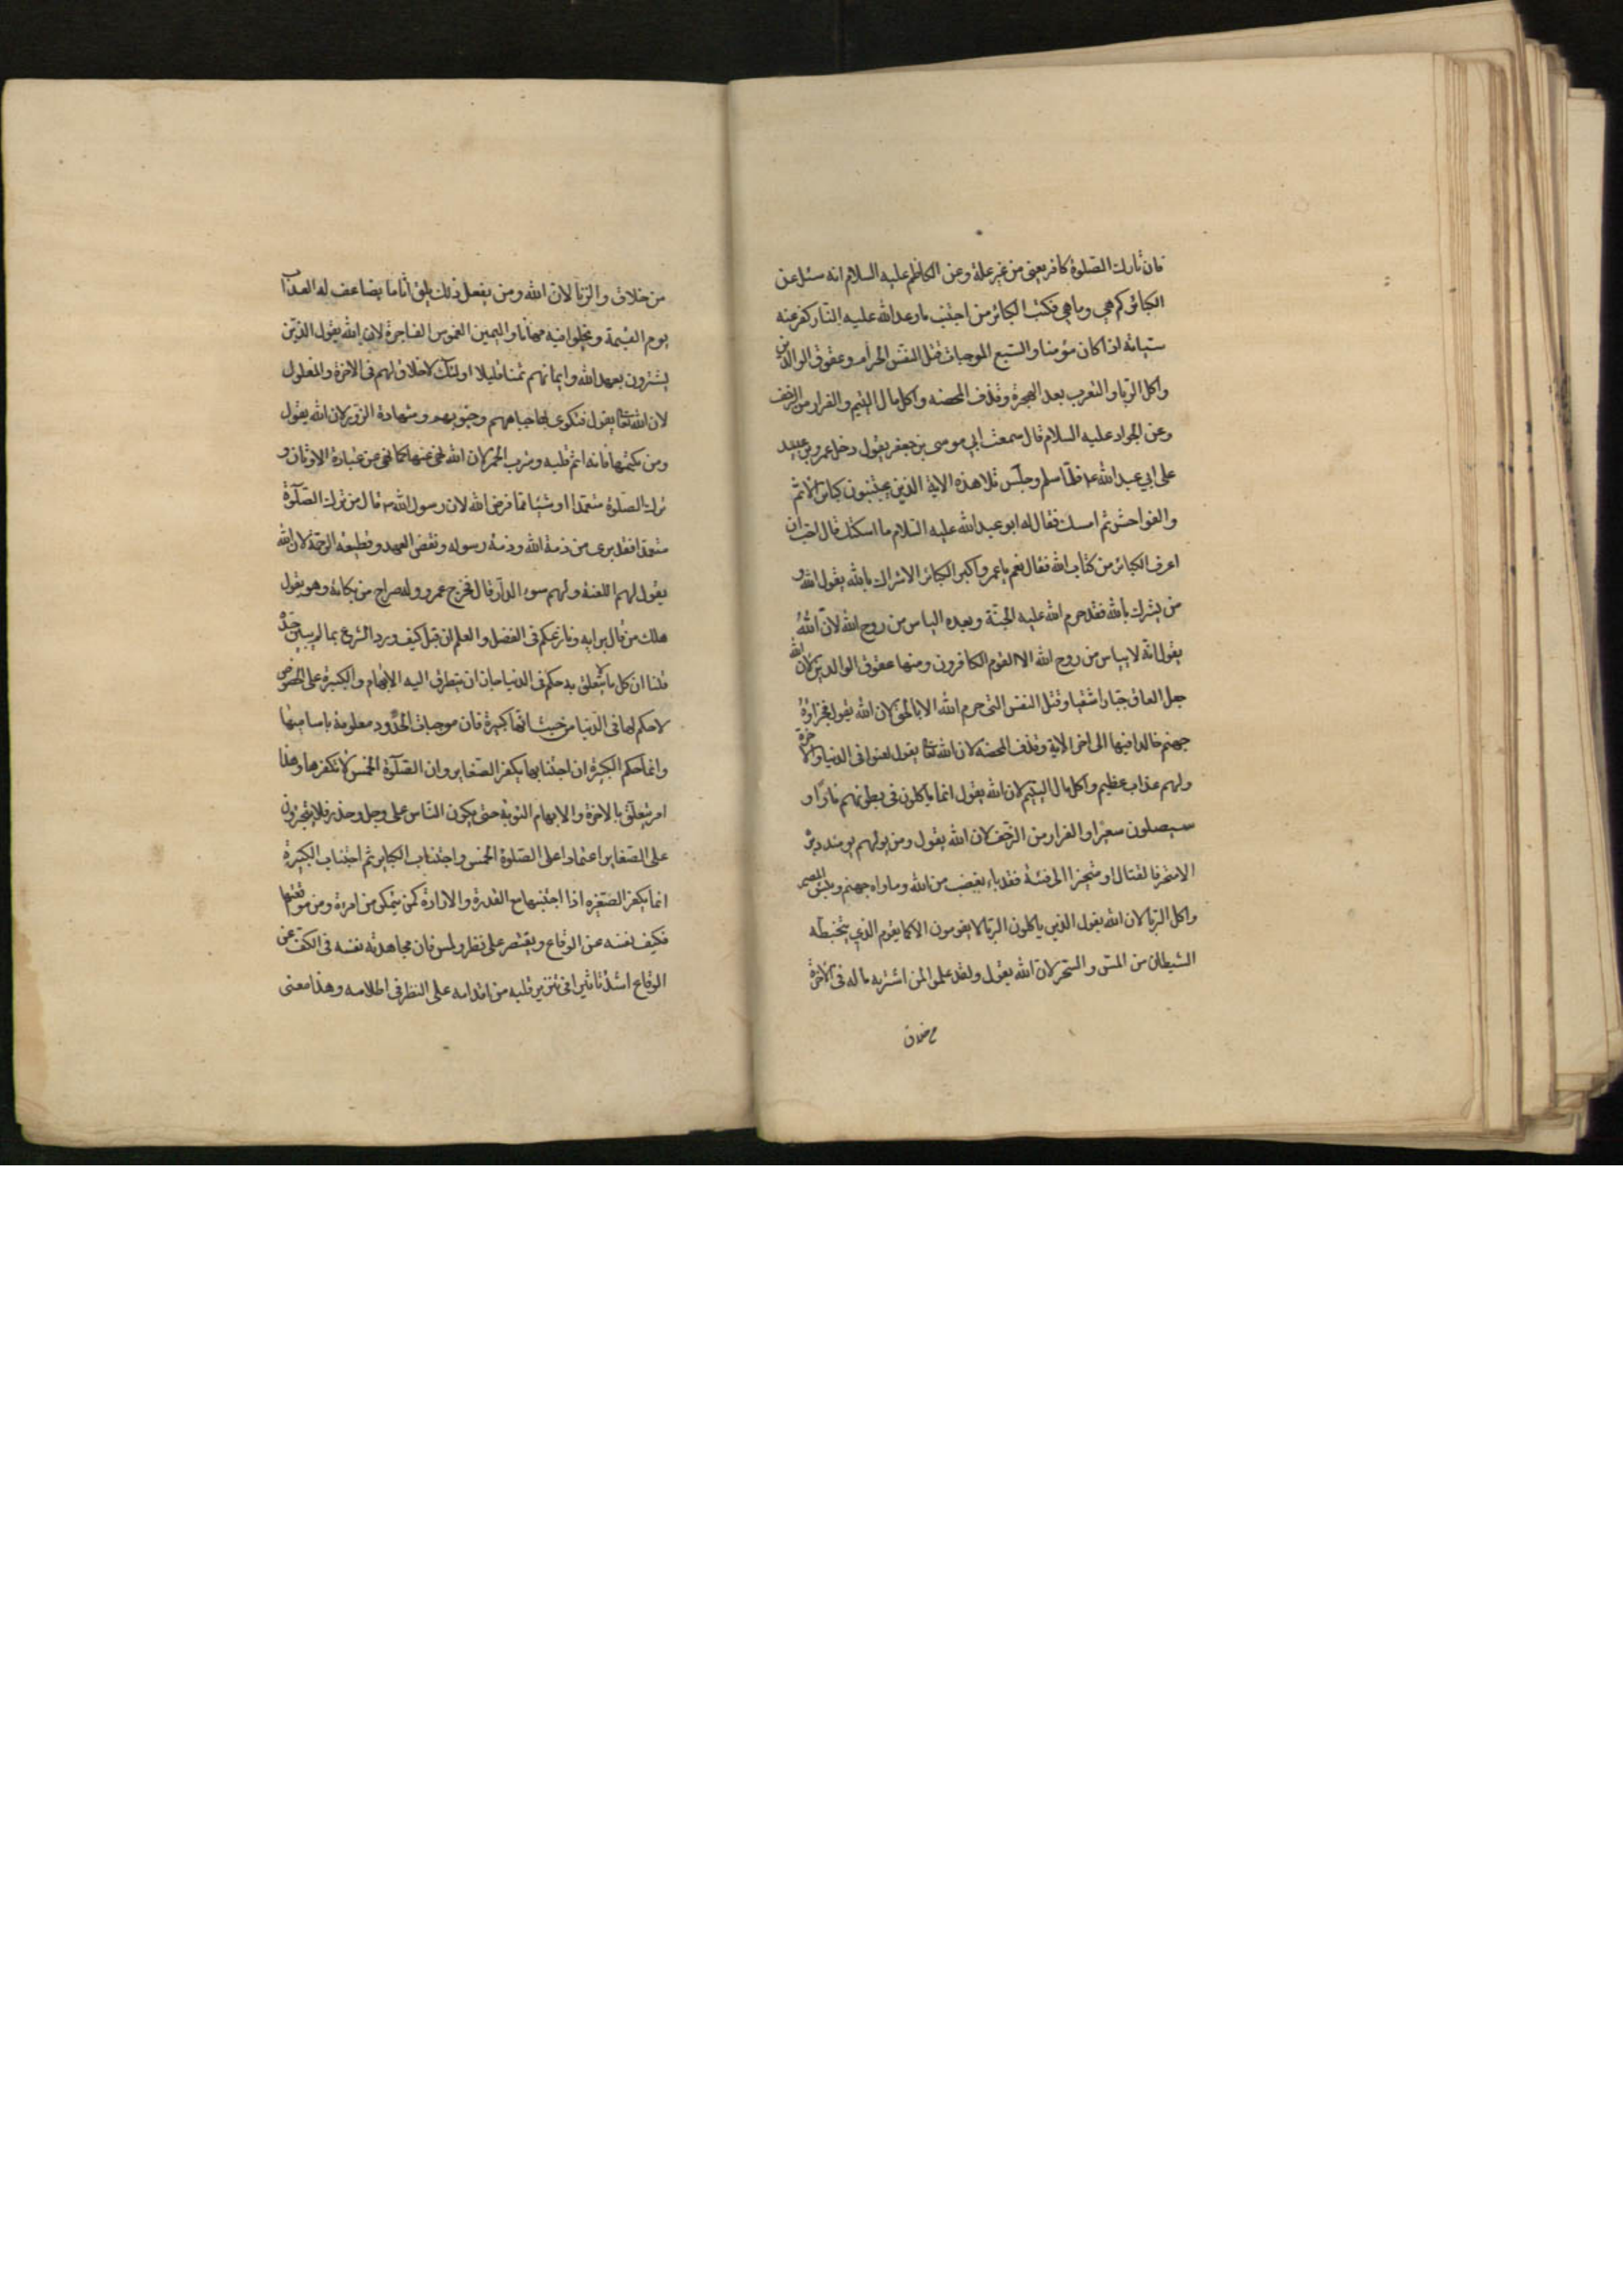 فان تارك الصلوة كافر يعنى من غير علة وعن الكاظم عليه السلام انه سئل عن
الكبائر كم هي وما هي فكتب الكبائر من اجتنب ما وعد الله عليه النار كفر عنه
سيئاته اذا كان مؤمنا والسبع الموجبات قتل النفس الحرام وعقوق الوالدين
واكل الربا والتعرب بعد الهجرة وقذف المحصنه واكل مال اليتيم والفرار من الزحف
وعن الجواد عليه السلام قال سمعت ابي موسى بن جعفر يقول دخل عمرو بن عبيد
على ابي عبد الله ع فلما سلم وجلس تلا هذه الاية الذين يجتنبون كبائر الاثم
والفواحش ثم امسك فقال له ابو عبد الله عليه السلام ما اسكتك قال احب ان
اعرف الكبائر من كتاب الله فقال نعم يا عمرو اكبر الكبائر الاشراك بالله يقول الله و
من يشرك بالله فقد حرم الله عليه الجنة وبعده الياس من روح الله لان الله
يقول انه لا يياس من روح الله الا القوم الكافرون ومنها عقوق الوالدين لان الله
جعل العاق جبارا شقيا وقتل النفس التى حرم الله الا بالحق لان الله يقول فجزاؤه
جهنم خالدا فيها الى اخر الاية وقذف المحصنه لان الله تعا يقول لعنوا فى الدنيا والاخرة
ولهم عذاب عظيم واكل مال اليتيم لان الله يقول انما ياكلون فى بطونهم نارا و
سيصلون سعيرا والفرار من الزحف لان الله يقول ومن يولهم يومئذ دبره
الا متحرفا لقتال او متحيزا الى فئة فقد باء بغضب من الله وماواه جهنم وبئس المصير
واكل الربا لان الله يقول الذين ياكلون الربا لا يقومون الا كما يقوم الذي يتخبطه
الشيطان من المس والسحر لان الله يقول ولقد علموا لمن اشتريه ما له فى الاخرة
من خلاق
من خلاق والزنا لان الله ومن يفعل ذلك يلق اثاما يضاعف له العذاب
يوم القيمة ويخلد فيه مهانا واليمين الغموس الفاجرة لان الله يقول الذين
يشترون بعهد الله وايمانهم ثمنا قليلا اولئك لا خلاق لهم فى الاخرة والغلول
لان الله تعا يقول فتكوى بها جباههم وجنوبهم وشهادة الزور لان الله يقول
ومن يكتمها فانه اثم قلبه وشرب الخمر لان الله نهى عنها كما نهى عن عبادة الاوثان و
ترك الصلوة متعمدا او شيئا مما فرض الله لان رسول الله ص قال من ترك الصلوة
متعمدا فقد برى من ذمة الله وذمة رسوله ونقض العهد وقطيعة الرحم لان الله
يقول لهم اللعنة ولهم سوء الدار قال فخرج عمرو وله صراخ من بكائه وهو يقول
هلك من قال برايه ونازعكم فى الفضل والعلم ان قيل كيف ورد الشرع بما لم يبين حده
قلنا ان كل ما لا يتعلق به حكم فى الدنيا جاز ان يتطرق اليه الابهام والكبيرة على الخصوص
لا حكم لها فى الدنيا من حيث انها كبيرة فان موجبات الحدود معلومة باساميها
وانما حكم الكبيرة ان اجتنابها يكفر الصغاير وان الصلوة الخمس لا تكفرها وهذا
امر يتعلق بالاخرة والابهام اليق به حتى يكون الناس على وجل وحذر فلا يتجرؤن
على الصغاير اعتمادا على الصلوة الخمس واجتناب الكباير ثم اجتناب الكبيرة
انما يكفر الصغيره اذا اجتنبها مع القدرة والارادة كمن يتمكن من امرءة ومن مواقعتها
فكيف نفسه عن الوقاع ويقتصر على نظر ولمس فان مجاهدته نفسه فى الكف عن
الوقاع اشد تاثيرا فى تنوير قلبه من اقدامه على النظر فى اظلامه وهذا معنى